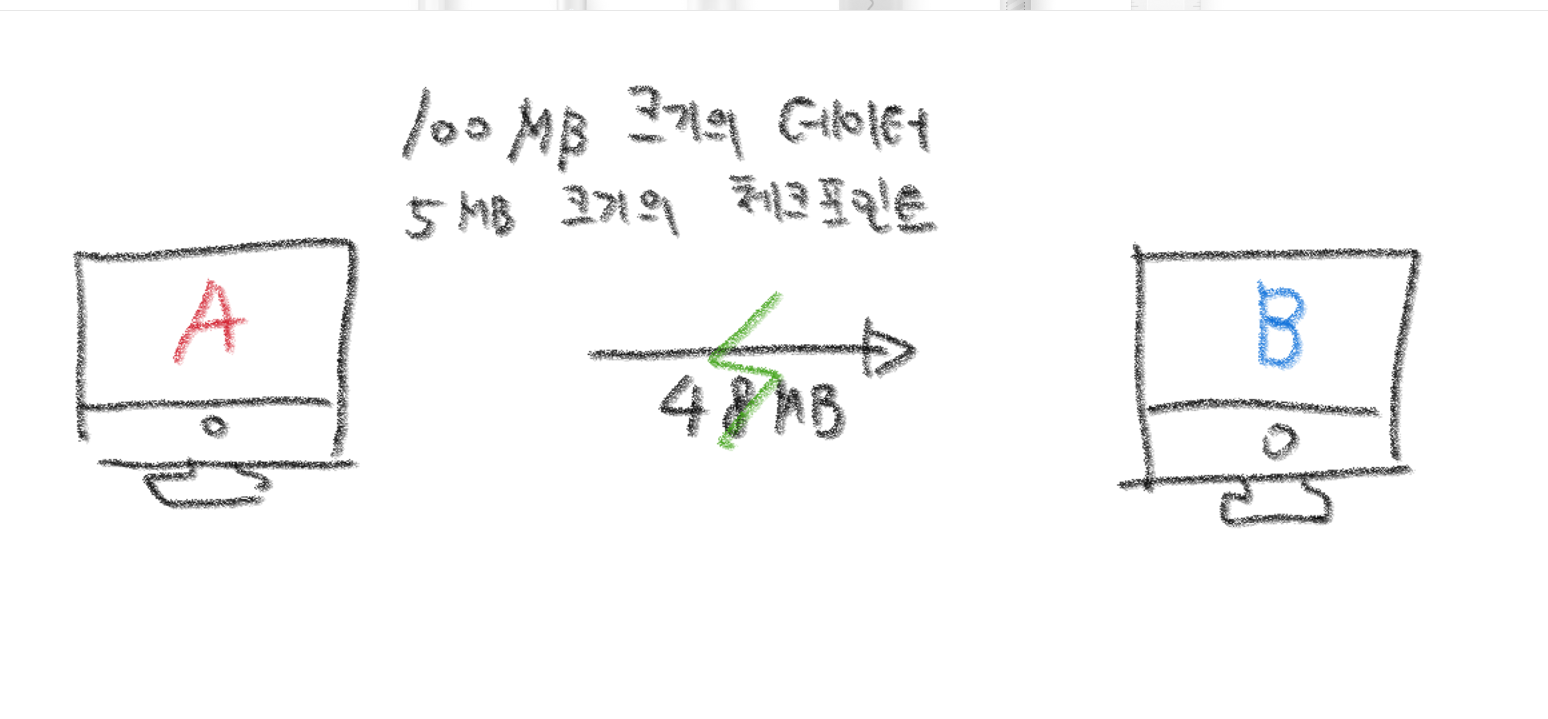 100 MB 크기의 데이터
5 MB 크기의 체크포인트
A
B
48MB